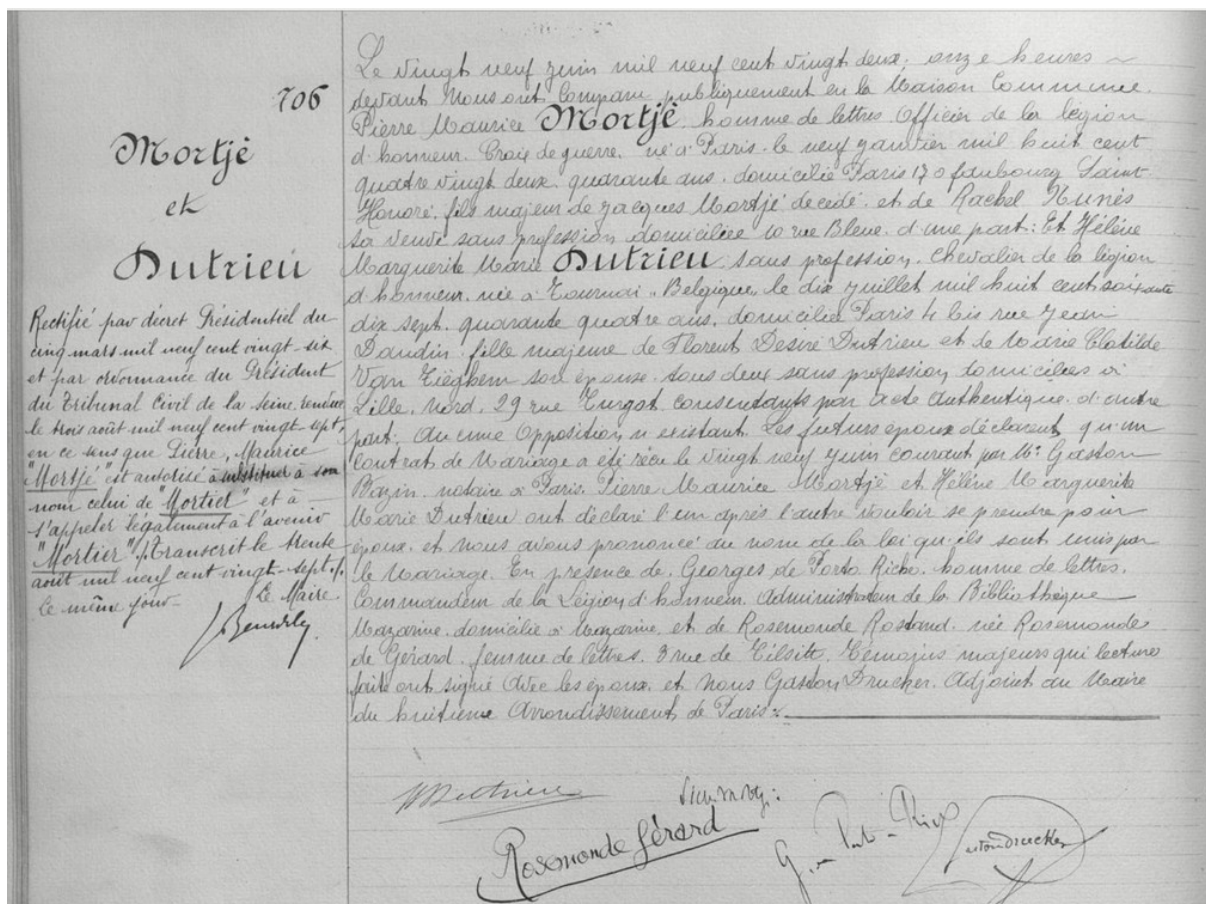 706
Mortjé
et
Dutrieu
Rectifié par décret Présidentiel du
cinq mars mil neuf cent vingt-six
et par ordonnance du Président
du Tribunal Civil de la Seine, rendue
le trois août mil neuf cent vingt-sept,
en ce sens que Pierre, Maurice
"Mortjé" est autorisé à substituer à son
nom celui de "Mortier" et à
s'appeler légalement à l'avenir
"Mortier" ./. Transcrit le trente
août mil neuf cent vingt-sept ./.
le même jour - Le Maire.
Le vingt neuf juin mil neuf cent vingt deux, onze heures
devant Nous ont Comparu publiquement en la Maison Commune.
Pierre Maurice Mortjé, homme de lettres Officier de la légion
d'honneur. Croix de guerre. né à Paris. le neuf janvier mil huit cent
quatre vingt deux. quarante ans. domicilié Paris 170 faubourg Saint
Honoré, fils majeur de Jacques Mortjé décédé et de Rachel Nunès
sa veuve sans profession domiciliée 10 rue Bleue. d'une part: Et Hélène
Marguerite Marie Dutrieu, sans profession. Chevalier de la légion
d'honneur. née à Tournai "Belgique" le dix juillet mil huit cent soixante
dix sept. quarante quatre ans. domiciliée Paris 4 bis rue Jean
Daudin fille majeure de Florent Désiré Dutrieu et de Marie Clotilde
Van Tièghem son épouse. tous deux sans profession domiciliés à
Lille. Nord. 29 rue Turgot consentants par acte authentique. d'autre
part; Aucune Opposition n'existant. Les futurs époux déclarent qu'un
Contrat de Mariage a été reçu le vingt neuf juin courant par Me Gaston
Bazin. notaire à Paris. Pierre Maurice Mortjé et Hélène Marguerite
Marie Dutrieu ont déclaré l'un après l'autre vouloir se prendre pour
époux. et nous avons prononcé au nom de la loi qu'ils sont unis par
le Mariage. En présence de, Georges de Porto Riche. homme de lettres.
Commandeur de la Légion d'honneur. Administrateur de la Bibliothèque
Mazarine. domicilié à Mazarine, et de Rosemonde Rostand. née Rosemonde
de Gérard. femme de lettres. 3 rue de Tilsitt. Témoins majeurs qui lecture
faite ont signé avec les époux. et Nous Gaston Drucker. Adjoint au Maire
du huitième Arrondissement de Paris.
Rosemonde Gérard
G. de Porto-Riche
Gaston Drucker